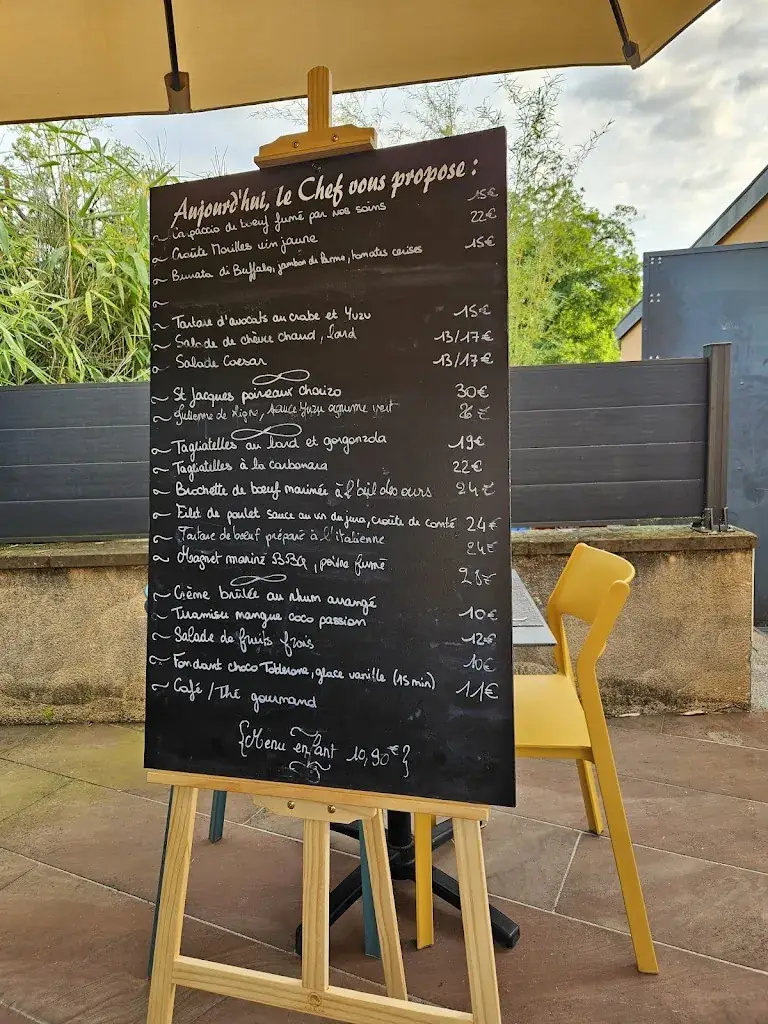 Aujourd'hui, le Chef vous propose :
~ Carpaccio de bœuf fumé par nos soins 15€
~ Croûte Morilles vin jaune 22€
~ Burrata di Buffala, jambon de Parme, tomates cerises 15€
~
~ Tartare d'avocats au crabe et Yuzu 15€
~ Salade de chèvre chaud, lard 13/17€
~ Salade Caesar 13/17€
~ St Jacques poireaux chorizo 30€
~ Julienne de , sauce Yuzu agrume vert 26€
~ Tagliatelles au lard et gorgonzola 19€
~ Tagliatelles à la carbonara 22€
~ Brochette de bœuf marinée à l'ail des ours 24€
~ Filet de poulet sauce au vin du jura, croûte de comté 24€
~ Tartare de bœuf préparé à l'italienne 24€
~ Magret mariné BBQ, poivre fumé 28€
~ Crème brûlée au rhum arrangé 10€
~ Tiramisu mangue coco passion 12€
~ Salade de fruits frais 10€
~ Fondant choco Toblerone, glace vanille (15 min) 11€
~ Café / Thé gourmand
{Menu enfant 10,90€}